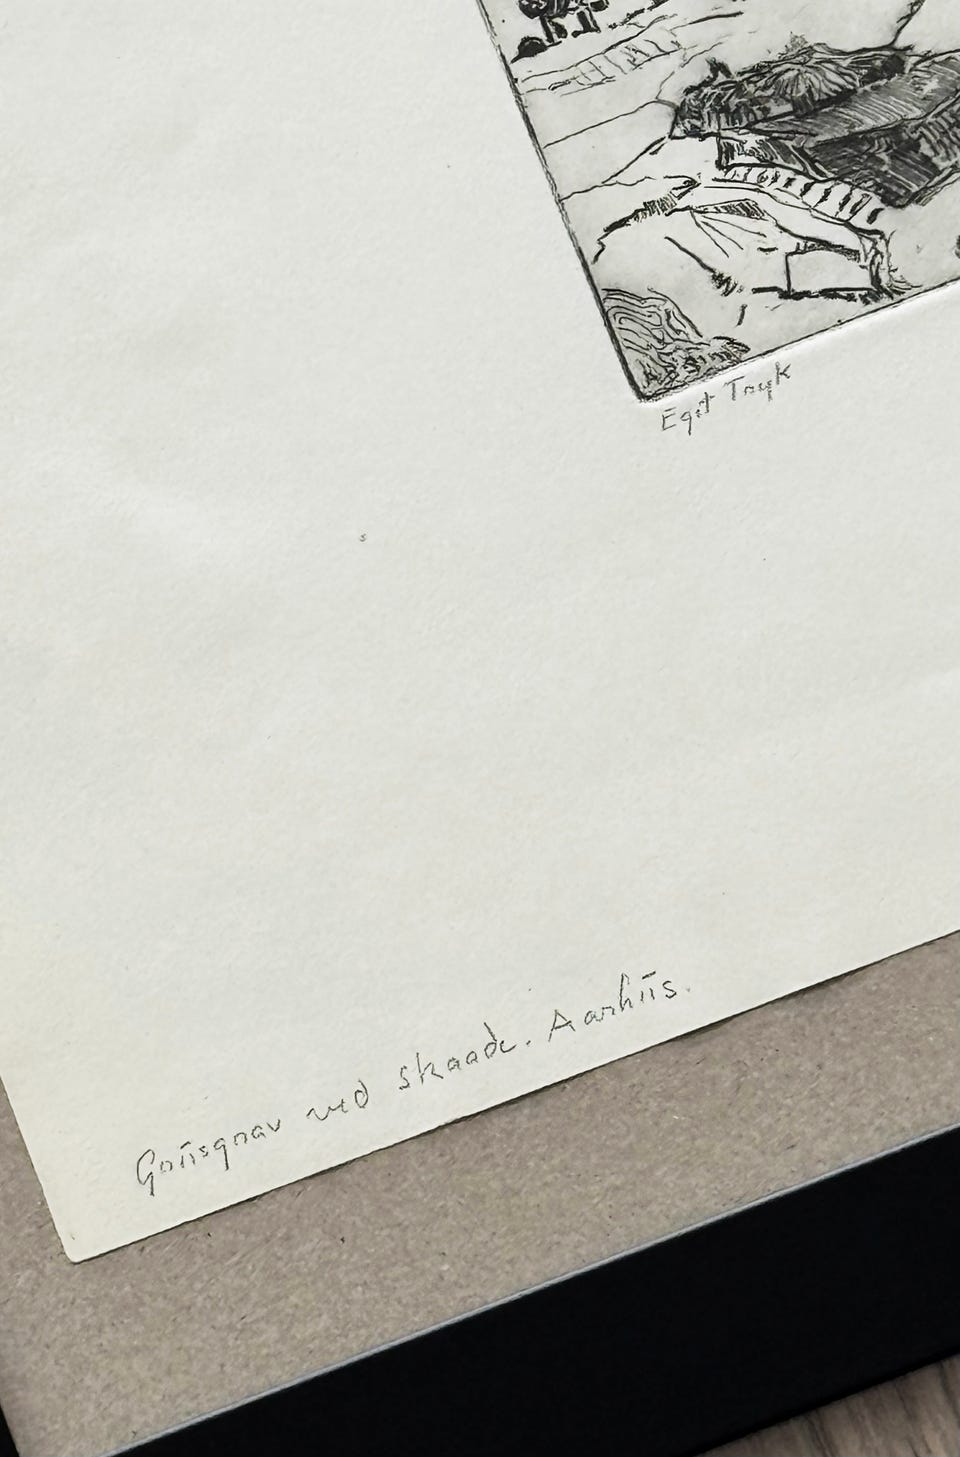 Eget Tryk
Grusgrav ved Skaade. Aarhus.